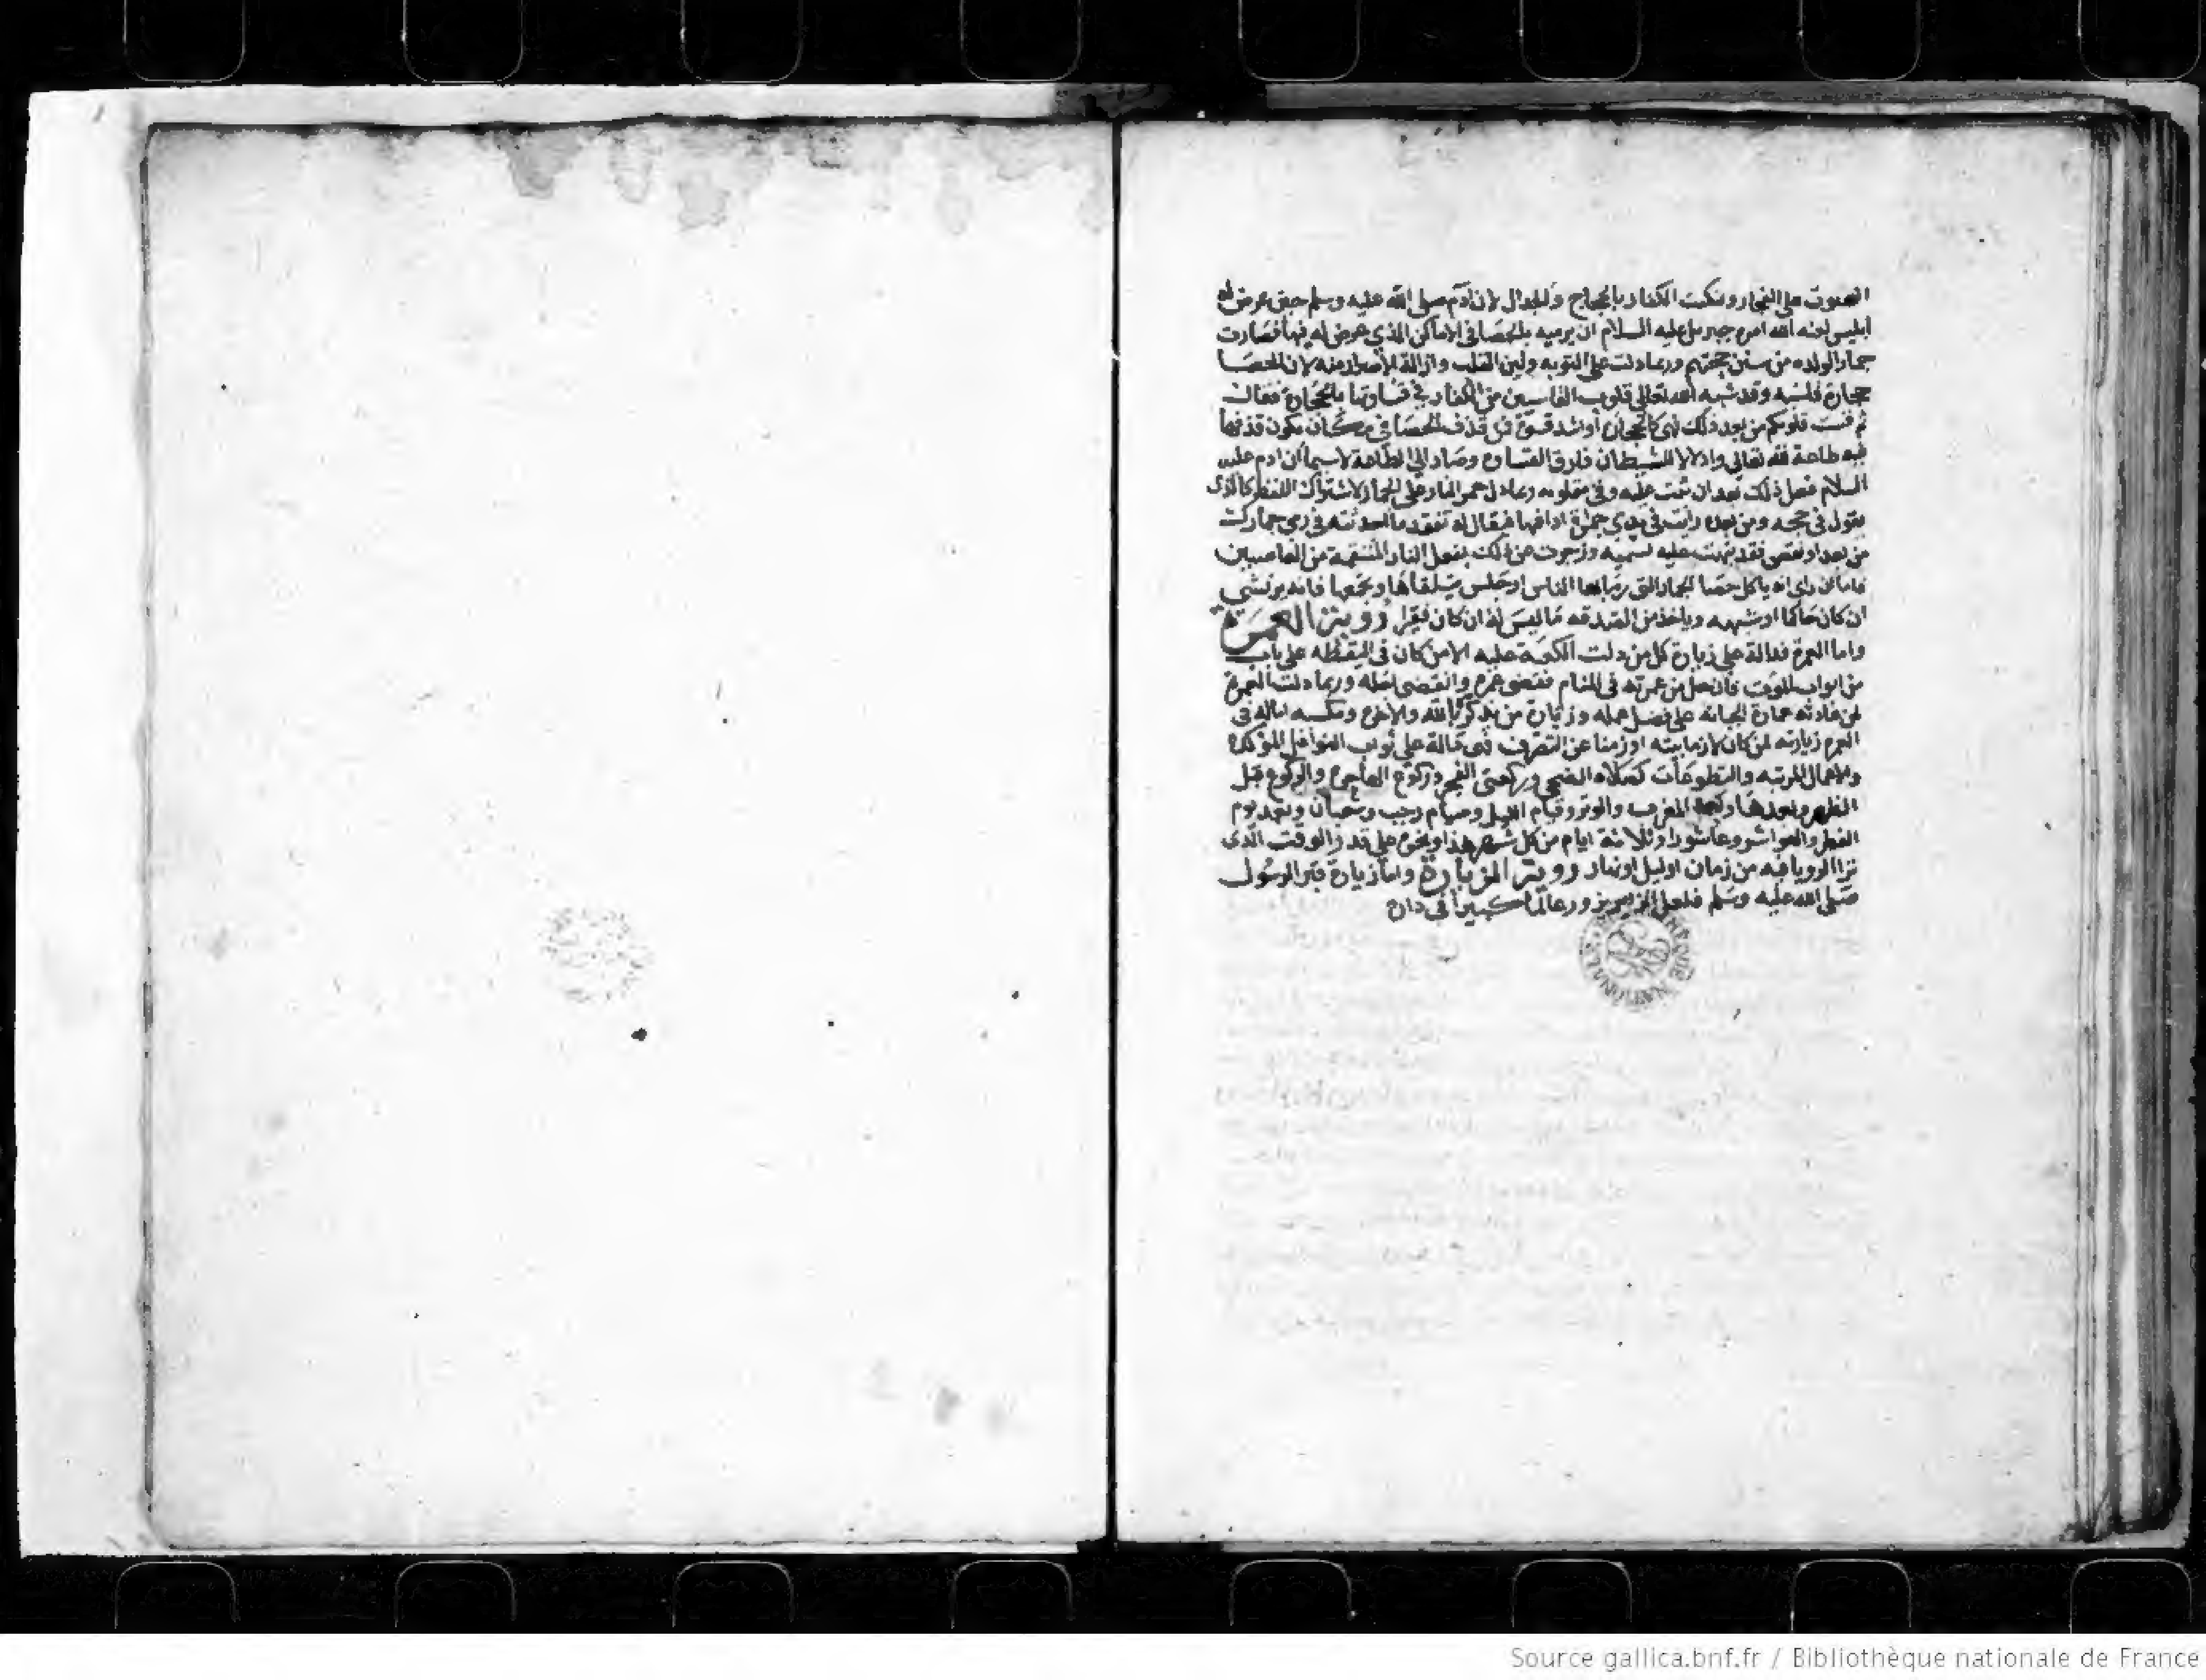 على الفجار ونكت الكفار بالحجاج والجدال لان آدم صلى الله عليه وسلم حين عرض له
ابليس لعنه الله امره جبريل عليه السلام ان يرميه بالحصا في الاماكن الذي عرض له فيها فصارت
جمارا لولده من سنن حجتهم وربما دلت على التوبه ولين القلب وازالة الاصرار منه لان الحصا
حجارة قاسيه وقد شبه الله تعالى قلوب القاسين من الكفار في قساوتها بالحجارة فقال
ثم قست قلوبكم من بعد ذلك فهي كالحجارة أو اشد قسوة فمن قذف الحصا في مكان يكون قذفها
فيه طاعة لله تعالى واذلالا للشيطان فارق القساوة وصار الى الطاعة لاسيما ان ادم عليه
السلام فعل ذلك بعد ان تيب عليه وربما دل جمر النار على الجمار لاشتراك اللفظ كالذى
يقول في حجه ومن بعده رايت في يدي جمرة فيقال له تفقد ما احدثته في رمي جمارك
من بعد او نقص فقد نبهت عليه وزجرت عن ذلك بفعل النار المنتقمة من العاصيين
فاما من راى انه ياكل حصا الجمار التي رماها الناس او جلس يتلقاها ويجمعها فانه يرتشي
ان كان حاكما او شبهه وياخذ من الصدقه ما ليس له ان كان فقيرا رؤية العمرة
واما العمرة فدالة على زيارة كل من دلت الكعبة عليه الا من كان في اليقظه على باب
من ابواب الموت فان حل من عمرته في المنام فقضى عمره وانقضى اجله وربما دلت العمرة
لمن عادته عمارة الجبانه على فضل عمله وزيارة من يذكر بالله والاخرة
العمرة زيارته لمن كان لازما بيته او زمنا عن التصرف فهي دالة على ثواب النوافل المؤكدة
والاعمال المرتبه والتطوعات كصلاة الضحى وركعتي الفجر وركوع الهاجرة والركوع قبل
الظهر وبعدها وبعد المغرب والوتر وقيام الليل وصيام رجب وشعبان وبعد يوم
الفطر والعواشر وعاشورا وثلاثة ايام من كل شهر هذا ونحوه على قدر الوقت الذى
ترا الرويا فيه من زمان او ليل او نهار رؤية الزيارة واما زيارة قبر الرسول
صلى الله عليه وسلم فلعل الزائر يزور عالما كبيرا في داره
Source gallica.bnf.fr / Bibliothèque nationale de France